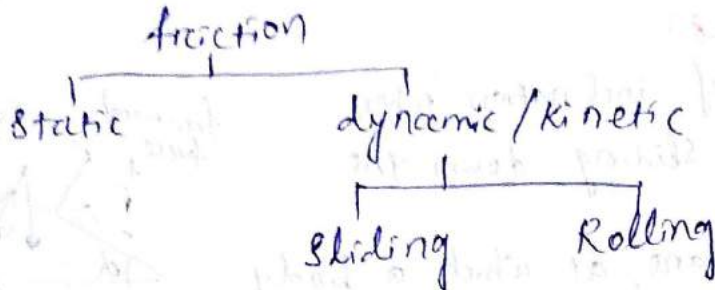 friction
static dynamic/Kinetic
Sliding Rolling